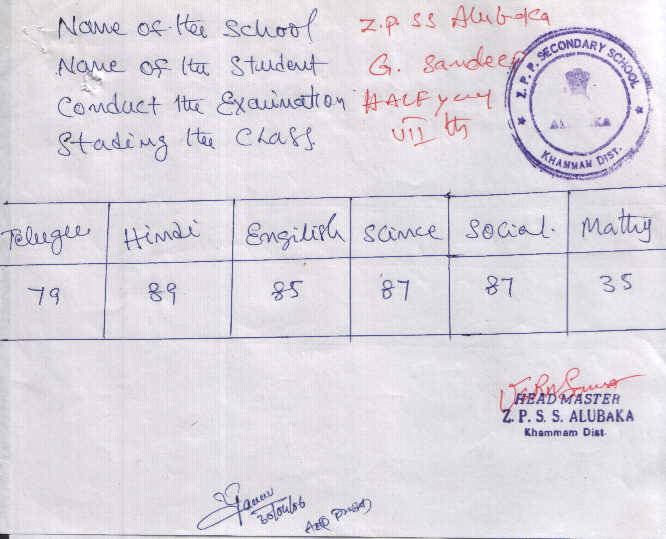 Name of the School Z.P.SS Alubaka
Name of the Student G. Sandeep
Conduct the Examination HALF yearly
Stading the Class VII th
Z. P. P. SECONDARY SCHOOL
ALUBAKA
KHAMMAM DIST.
Telugu Hindi Engilish Science Social. Maths
79 89 85 87 87 35
HEAD MASTER
Z. P. S. S. ALUBAKA
Khammam Dist.